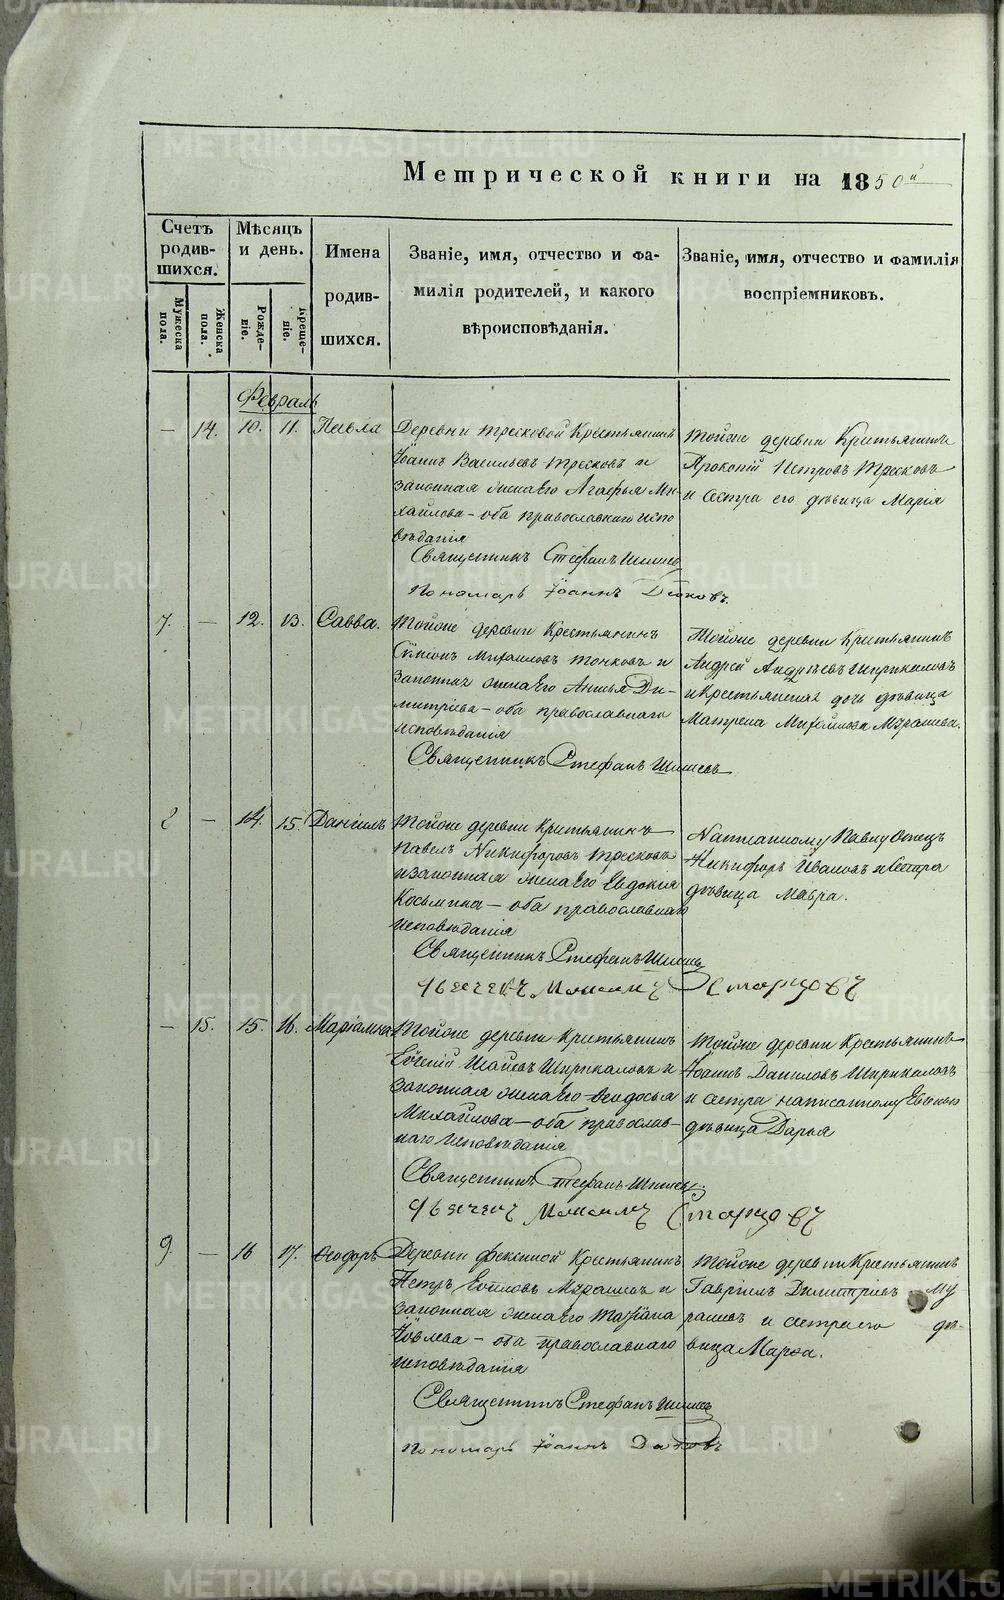 Метрической книги на 1850й
Счетъ родив-шихся.
Мужеска пола.
Женска пола.
Мѣсяцъ и день.
Рожде-ніе.
Креще-ніе.
Имена родив-шихся.
Званіе, имя, отчество и фа-
милія родителей, и какого
вѣроисповѣданія.
Званіе, имя, отчество и фамилія
воспріемниковъ.
Февраль
— 14. 10. 11. Павла
Деревни Тресковой Крестьянинъ
Іоаннъ Васильевъ Тресковъ и
законная жена его Агафья Ми-
хайлова – оба православнаго испо
вѣданія
Священникъ Стефанъ
Пономарь Іоаннъ
Тойже деревни Крестьянинъ
Прокопій Петровъ Тресковъ
и сестра его дѣвица Марія
7. — 12. 13. Савва.
Тойже деревни Крестьянинъ
Михайловъ и
законная жена его Ди-
митріева – оба православнаго
исповѣданія
Священникъ Стефанъ
Тойже деревни Крестьянинъ
Андрей Андреевъ Ширикаловъ
и крестьянская дочь дѣвица
Матрена Михайлова
— 14. 15. Даніилъ
Тойже деревни Крестьянинъ
Павелъ Никифоровъ Тресковъ
и законная жена его Евдокія
Косьмина – оба православнаго
исповѣданія
Священникъ Стефанъ
Старцовъ
Написанному Павлу отецъ
Никифоръ Ивановъ и сестра
дѣвица Мавра.
— 15. 15. 16. Маріамна
Тойже деревни Крестьянинъ
Евгеній Исаевъ Ширикаловъ и
законная жена его Ѳеодосья
Михайлова – оба православ-
наго исповѣданія
Священникъ Стефанъ
Старцовъ
Тойже деревни Крестьянинъ
Іоаннъ Даниловъ Ширикаловъ
и сестра написанному Евгенію
дѣвица Дарья
9. — 16 17. Ѳеодоръ
Деревни Крестьянинъ
Петръ и
законная жена его Татіана
Іовлева – оба православнаго
исповѣданія
Священникъ Стефанъ
Пономарь Іоаннъ
Тойже деревни Крестьянинъ
Гавріилъ Димитріевъ
и сестра его дѣ-
вица Марѳа.
METRIKI.GASO-URAL.RU